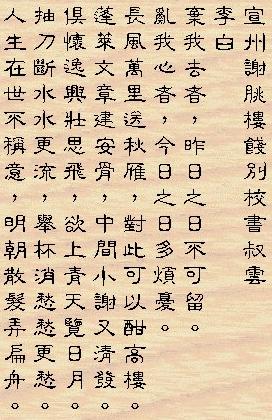 宣州謝朓樓餞別校書叔雲
李白
棄我去者，昨日之日不可留。
亂我心者，今日之日多煩憂。
長風萬里送秋雁，對此可以酣高樓。
蓬萊文章建安骨，中間小謝又清發。
俱懷逸興壯思飛，欲上青天覽日月。
抽刀斷水水更流，舉杯消愁愁更愁。
人生在世不稱意，明朝散髮弄扁舟。